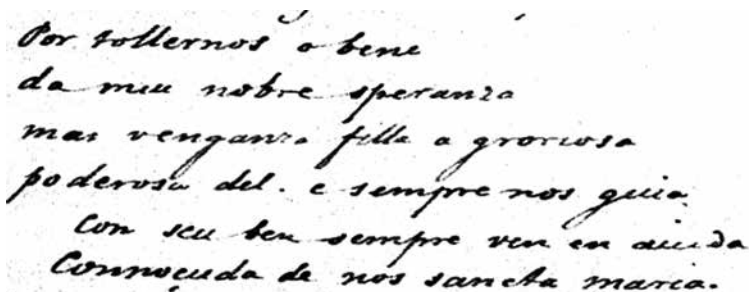 Por tollernos o bene
da mui nobre speranza
mas venganza fille a groriosa
poderosa del. e sempre nos guia
Con seu ben sempre ven en aiuda
Connoçuda de nos sancta maria.